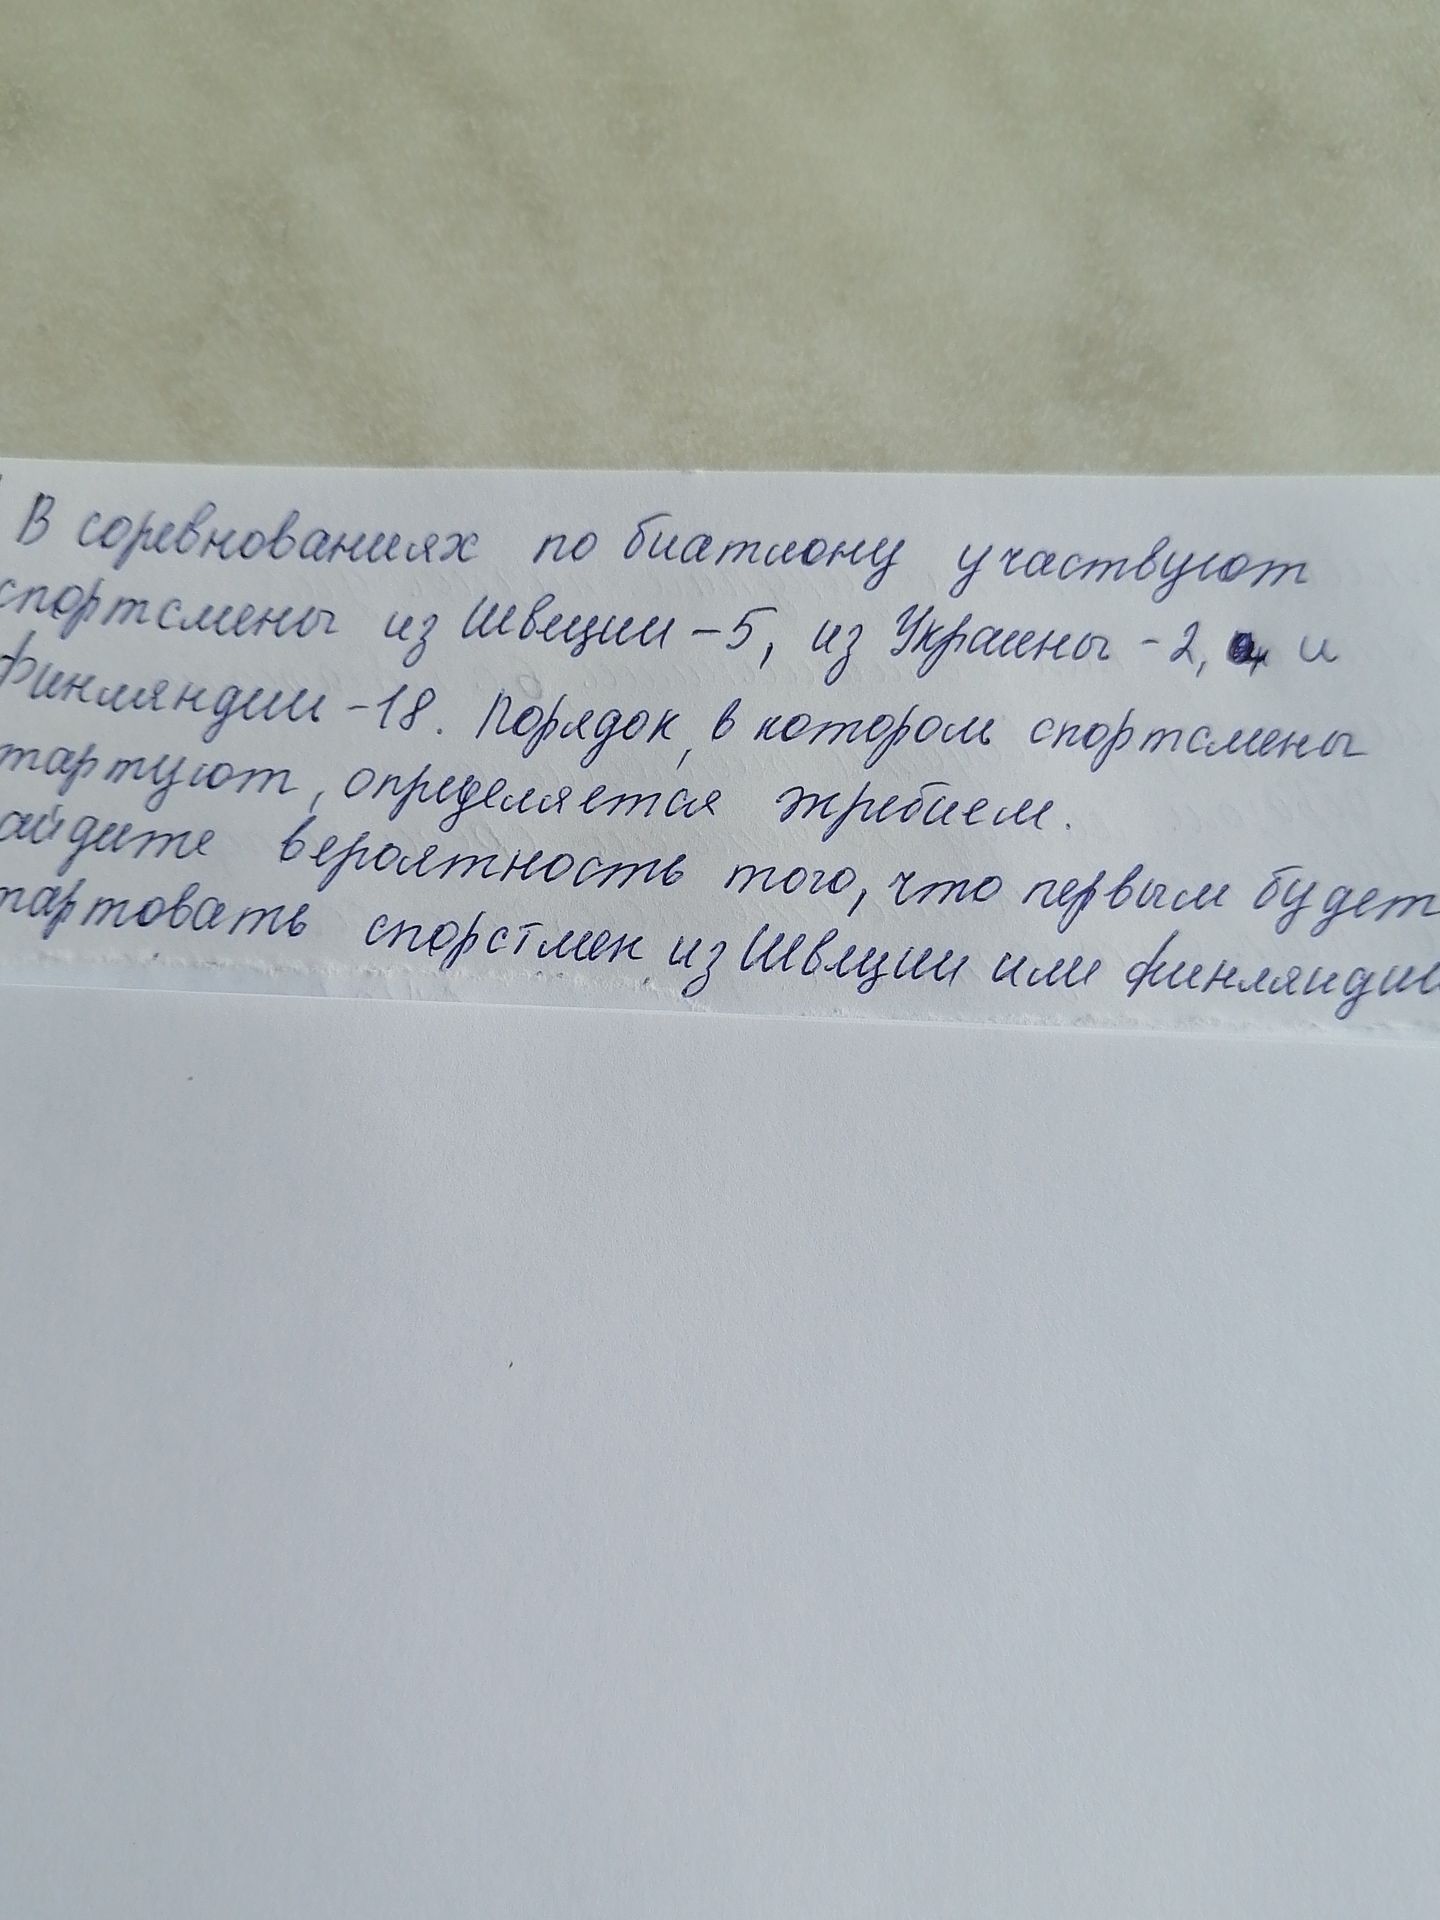 В соревнованиях по биатлону участвуют
спортсмены из Швеции -5, из Украины -2, и
Финляндии -18. Порядок, в котором спортсмены
тартуют, определяется жребием.
айдите вероятность того, что первым будет
тартовать спорстмен из Швеции или Финляндии